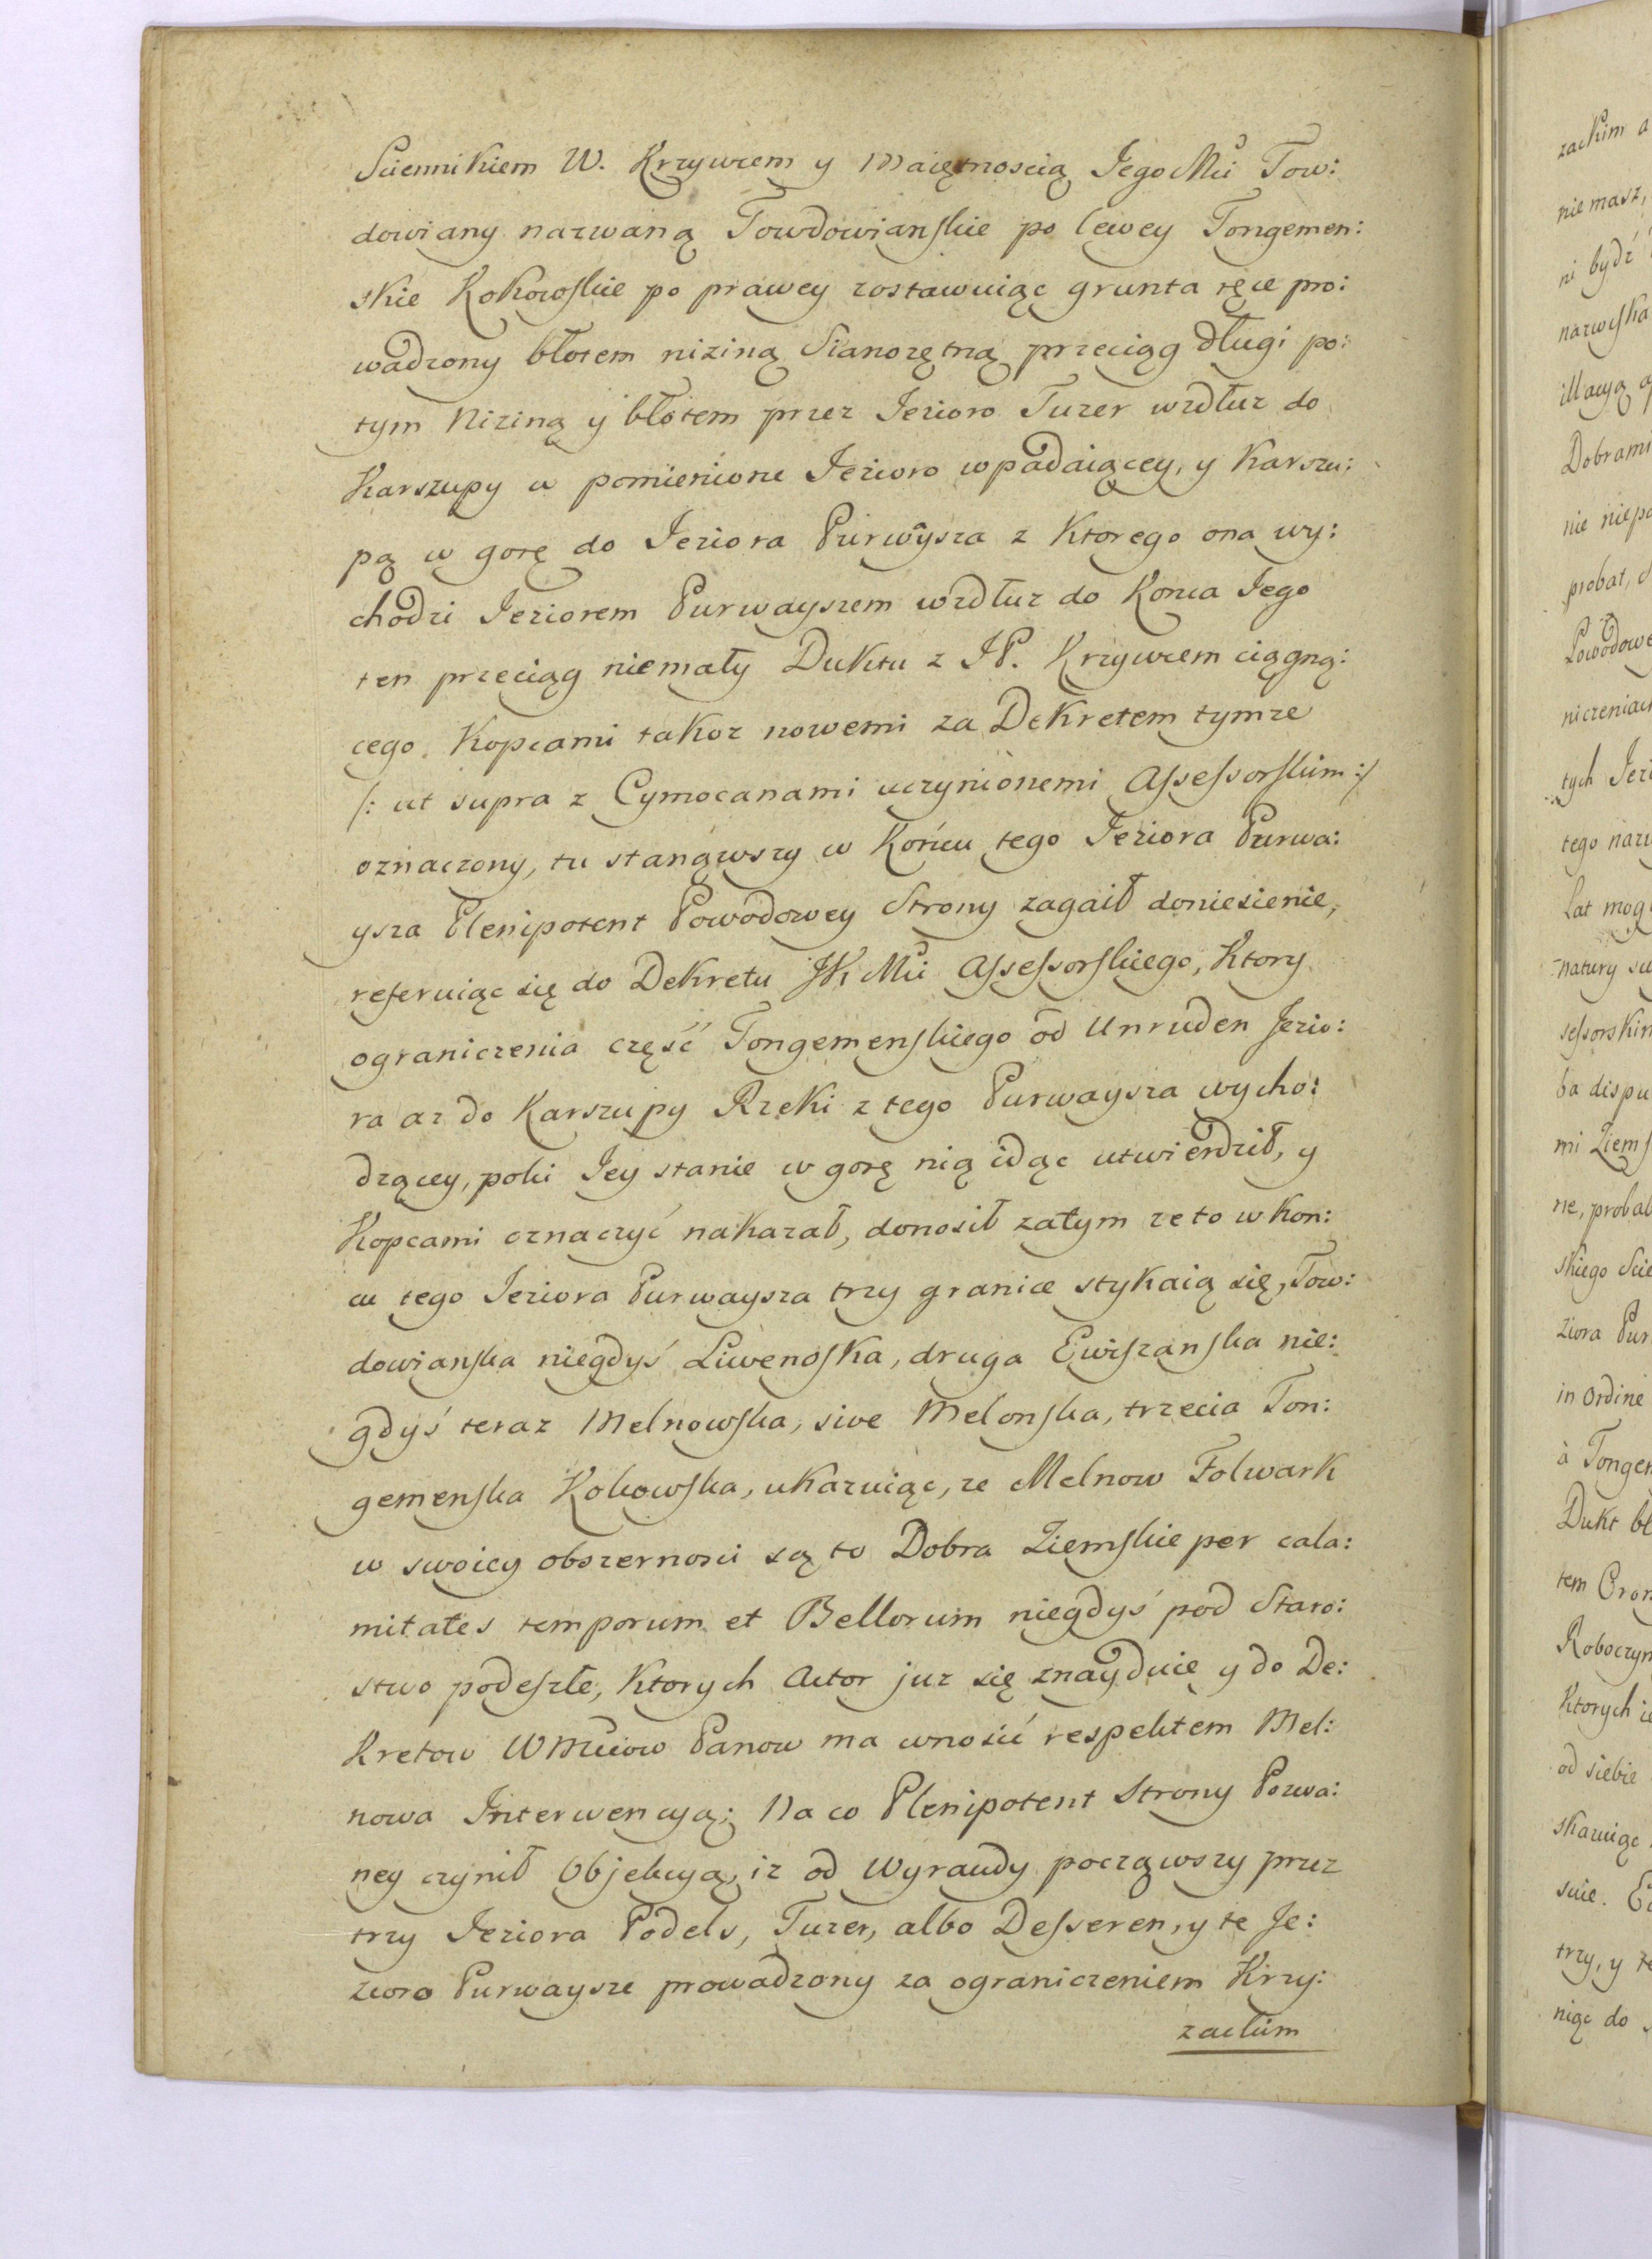 Sciennikiem W. Krzywcem y Maiętnoscią JegoMci Tow:
dowiany nazwaną Towdowianskie po lewey Tongemen:
skie Kokowskie po prawey zostawuiąc grunta ręce pro:
wadzony błotem niziną Sianozętną przeciąg długi po:
tym Niziną y błotem przez Jezioro Tuzer wzdłuz do
Karszupy w pomienione Jezioro wpadaiącey, y Karszu:
pą w gorę do Jeziora Purwysza z Ktorego ona wy:
chodzi Jeziorem Purwayszem wzdłuz do Konca Jego
ten przeciąg niemały Duktu z JP. Krzywcem ciągną:
cego. Kopcami takoz nowemi za Dekretem tymze
/: ut supra z Cymocanami uczynionemi Assessorskim :/
oznaczony, tu stanąwszy w Końcu tego Jeziora Purwa:
ysza Plenipotent Powodowey Strony zagaił doniesienie,
referuiąc się do Dekretu JKMci Assessorskiego, Ktory
ograniczenia część Tongemenskiego od Unruden Jezio:
ra az do Karszupy Rzeki z tego Purwaysza wycho:
dzącey, poki Jey stanie w gorę nią idąc utwierdził, y
Kopcami oznaczyć nakazał, donosił zatym ze to w Kon:
cu tego Jeziora Purwaysza trzy granice stykaią się, Tow:
dowianska niegdyś Liwenoska, druga Ewiszanska nie:
gdyś teraz Melnowska, sive Melonska, trzecia Ton:
gemenska Kokowska, ukazuiąc, ze Melnow Folwark
w swoiey obszernosci są to Dobra Ziemskie per cala:
mitates temporum et Bellorum niegdyś pod Staro:
stwo podeszłe, Ktorych Actor juz się znayduie y do De:
kretow WMciow Panow ma wnosić respektem Mel:
nowa Interwencyą; Na co Plenipotent Strony Pozwa:
ney czynił Objekcyą, iz od Wyraudy począwszy przez
trzy Jeziora Podels, Tuzer, albo Desseren, y te Je:
zioro Purwaysze prowadzony za ograniczeniem Krzy:
zackim